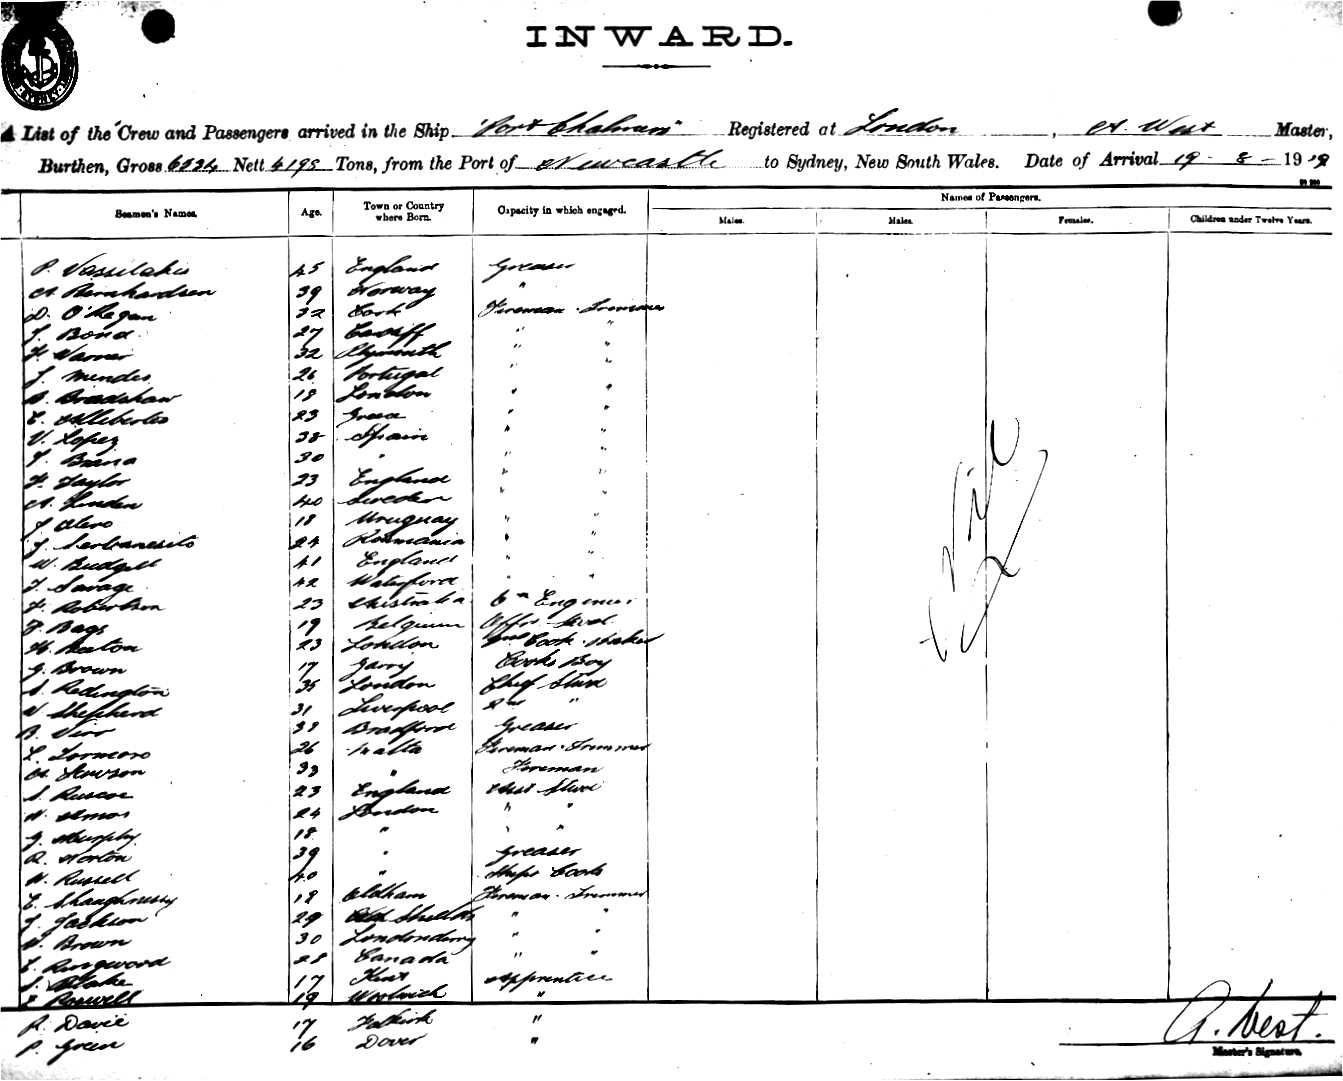 INWARD.
SYDNEY
A List of the Crew and Passengers arrived in the Ship "Port Chalmers" Registered at London, A. West Master,
Burthen, Gross 6534 Nett 4195 Tons, from the Port of Newcastle to Sydney, New South Wales. Date of Arrival 19-8-1919
Names of Passengers.
Seamen's Names. Age. Town or Country where Born. Capacity in which engaged. Males. Males. Females. Children under Twelve Years.
P. Vassilakis 45 England Greaser
A. Bernhardsen 39 Norway "
D. O'Regan 32 Cork Fireman Trimmer
J. Bond 27 Cardiff " "
F. Warner 32 Plymouth " "
J. Mendes 26 Portugal " "
Bradshaw 18 London " "
23 Greece " "
V. Lopez 38 Spain " "
30 " " "
F. Taylor 23 England " "
A. Linden 40 Sweden " "
18 Uruguay " "
24 Roumania " "
W. Budgell 41 England " "
J. Savage 42 Waterford " "
F. Robertson 23 Australia 6th Engineer
19 Belgium Offrs Stwd
H. Beaton 23 London 2nd Cook Baker
G. Brown 17 Garry Cooks Boy
S. Redington 35 London Chief Stwd
W. Shepherd 31 Liverpool 2nd "
B. Virr 38 Bradford Greaser
26 Malta Fireman Trimmer
33 " Fireman
S. Ruscoe 23 England Asst Stwd
H. Amos 24 London " "
G. Murphy 18 " " "
R. Norton 39 " Greaser
W. Russell 40 " Ships Cook
E. Shaughnessy 18 Oldham Fireman Trimmer
J. Jackson 29 Shields " "
W. Brown 30 Londonderry " "
E. Ringwood 28 Canada " "
S. Blake 17 Kent Apprentice
Boswell 19 Woolwich "
R. Davie 17 Falkirk "
P. Green 16 Dover "
Nil
A. West.
Master's Signature.